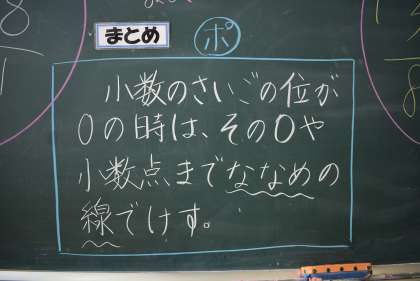 まとめ
ポ
小数のさいごの位が
0の時は、その0や
小数点までななめの
線でけす。
8
1
8